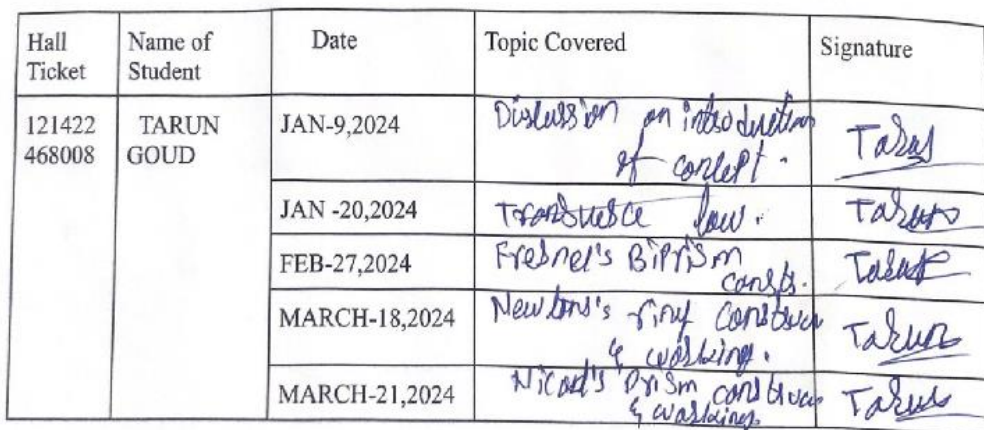 Hall Ticket
Name of Student
Date
Topic Covered
Signature
121422 468008
TARUN GOUD
JAN-9,2024
Discussion on introduction
of concept.
Tarun
JAN -20,2024
law.
Tarun
FEB-27,2024
Fresnel's BiPrism
consts.
Tarun
MARCH-18,2024
Newtons's ring construc
& working.
Tarun
MARCH-21,2024
Nicol's Prism construc
& working
Tarun